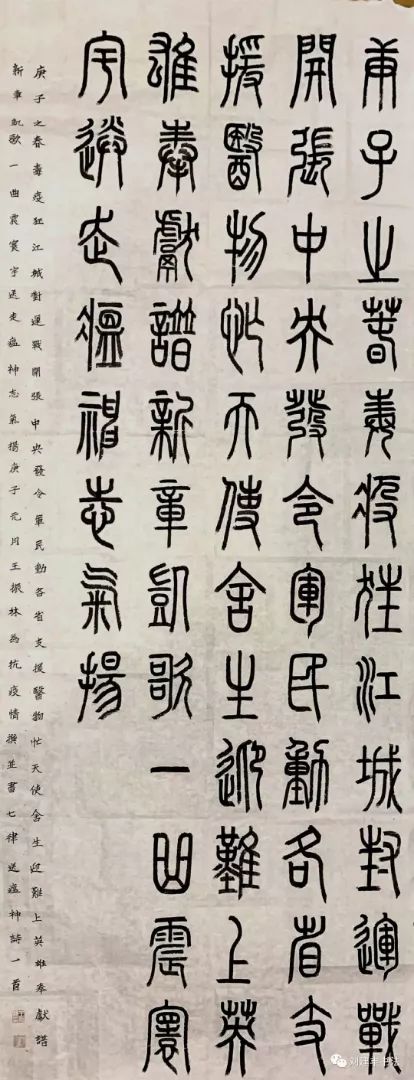 庚子之春毒疫狂江城封運戰
開張中央發令軍民動各省支
援醫物忙天使舍生迎難上英
雄奉獻譜新章凱歌一曲震寰
宇送走瘟神志氣揚
庚子之春毒疫狂江城封運戰開張中央發令軍民動各省支援醫物忙天使舍生迎難上英雄奉獻譜
新章凱歌一曲震寰宇送走瘟神志氣揚庚子元月王振林為抗疫情撰並書七律送瘟神詩一首